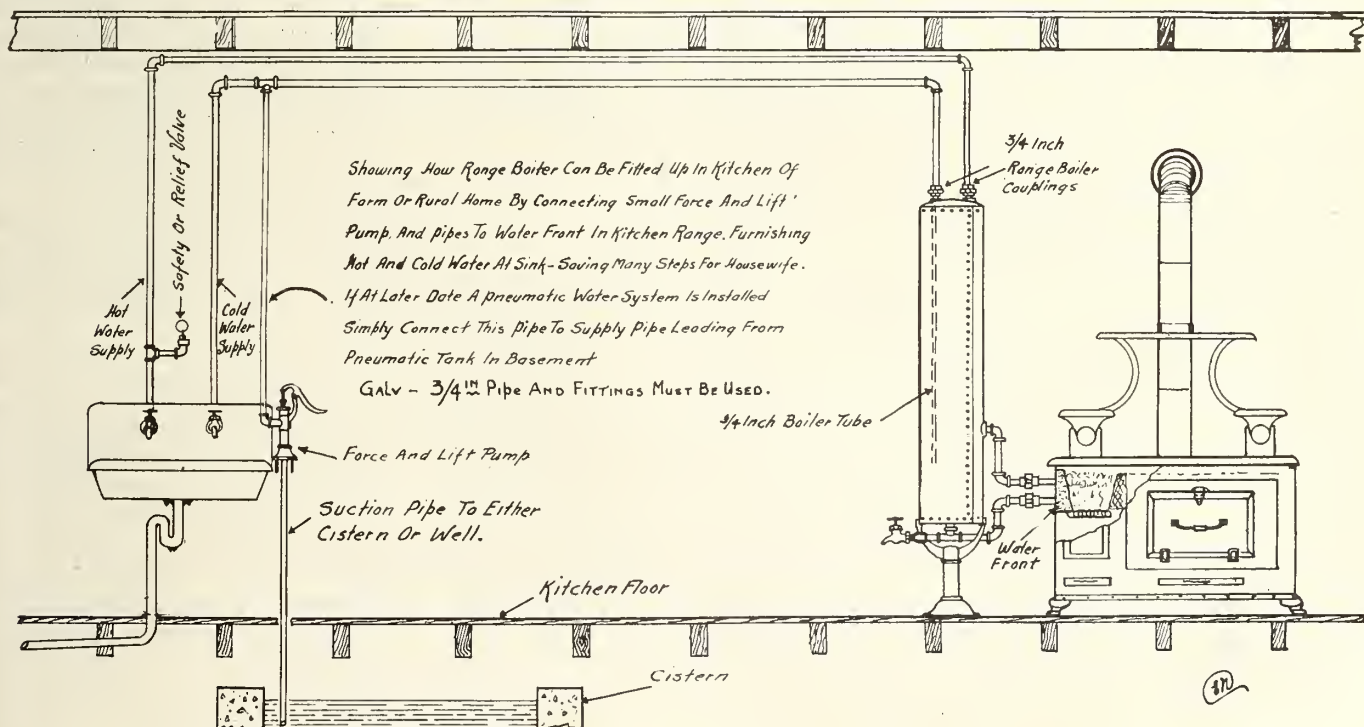 Showing How Range Boiler Can Be Fitted Up In Kitchen Of
Farm Or Rural Home By Connecting Small Force And Lift
Pump, And Pipes To Water Front In Kitchen Range, Furnishing
Hot And Cold Water At Sink - Saving Many Steps For Housewife.
If At Later Date A Pneumatic Water System Is Installed
Simply Connect This Pipe To Supply Pipe Leading From
Pneumatic Tank In Basement
GALV - 3/4 IN PIPE AND FITTINGS MUST BE USED.
Safety Or Relief Valve
Hot
Water
Supply
Cold
Water
Supply
3/4 Inch
Range Boiler
Couplings
3/4 Inch Boiler Tube
Force And Lift Pump
Suction Pipe To Either
Cistern Or Well.
Water
Front
Kitchen Floor
Cistern